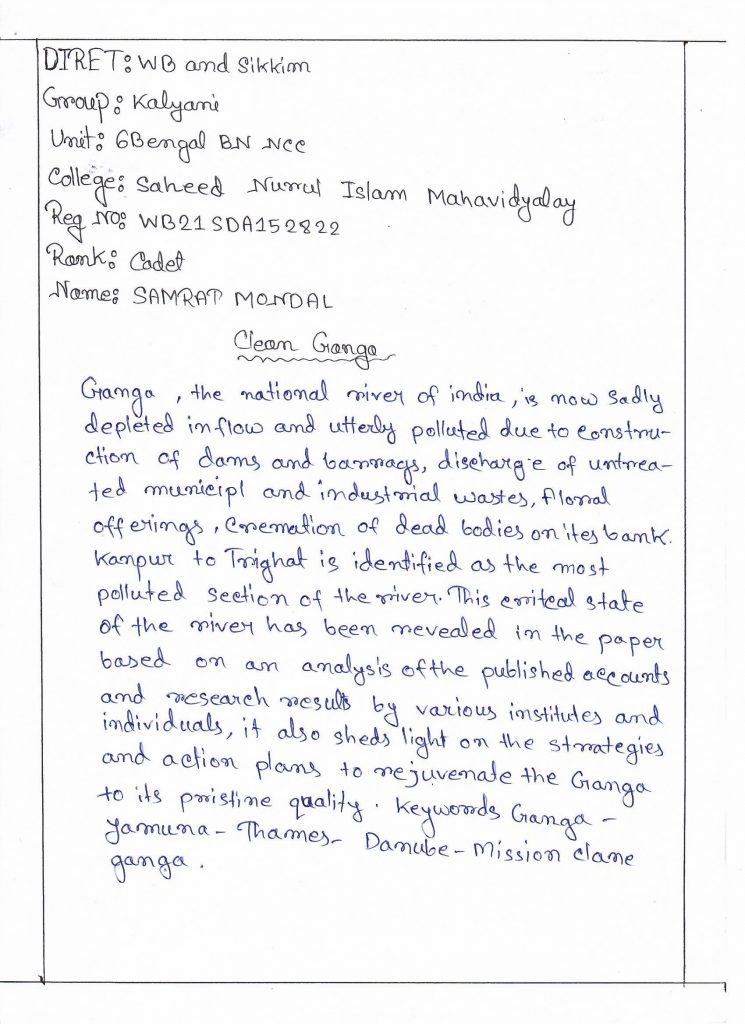 DIRET: WB and Sikkim
Group: Kalyani
Unit: 6Bengal BN NCC
College: Saheed Nurul Islam Mahavidyalay
Reg NO: WB21SDA152822
Rank: Cadet
Name: SAMRAT MONDAL
Clean Ganga
Ganga, the national river of india, is now sadly
depleted inflow and utterly polluted due to constru-
ction of dams and barrags, discharge of untrea-
ted municipl and industrial wastes, floral
offerings, cremation of dead bodies on ites bank.
Kanpur to Trighat is identified as the most
polluted section of the river. This critcal state
of the river has been revealed in the paper
based on an analysis of the published accounts
and research results by various institutes and
individuals, it also sheds light on the strategies
and action plans to rejuvenate the Ganga
to its pristine quality. Keywords Ganga -
Yamuna - Thames - Danube - Mission clane
ganga.